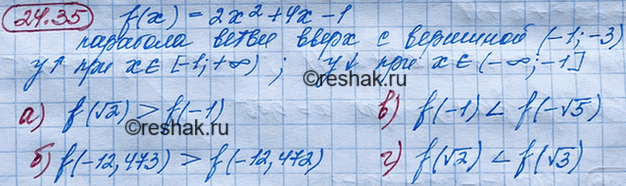 24.35 f(x) = 2x² + 4x - 1
парабола ветви вверх с вершиной (-1; -3)
y↑ при x∈[-1; +∞) ; y↓ при x∈(-∞; -1]
а) f(√2) > f(-1) в) f(-1) < f(-√5)
©reshak.ru ©reshak.ru
б) f(-12,473) > f(-12,472) г) f(√2) < f(√3)